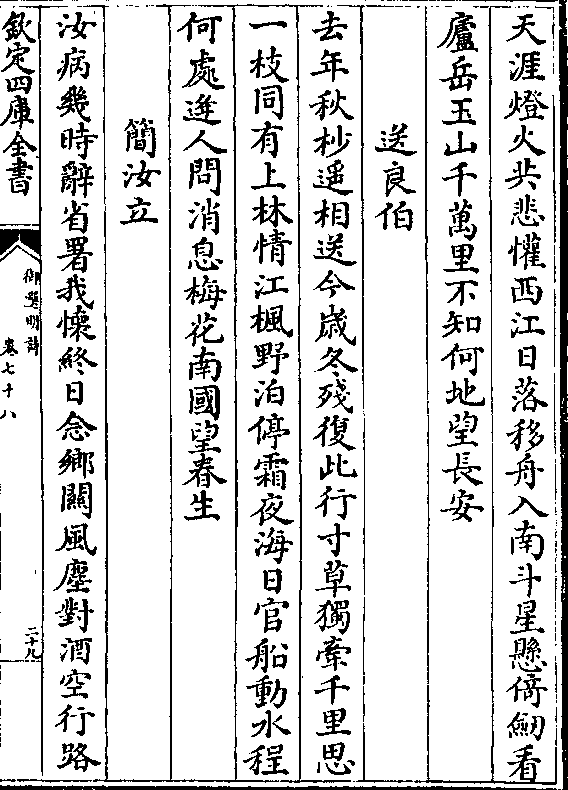 天涯燈火共悲懽西江日落移舟入南斗星懸倚劒看
廬岳玉山千萬里不知何地望長安
送良伯
去年秋杪遥相送今嵗冬殘復此行寸草獨牽千里思
一枝同有上林情江楓野泊停霜夜海日官船動水程
何處逢人問消息梅花南國望春生
簡汝立
汝病幾時辭省署我懐終日念鄉關風塵對酒空行路
欽定四庫全書
御選明詩
卷七十八
二十九